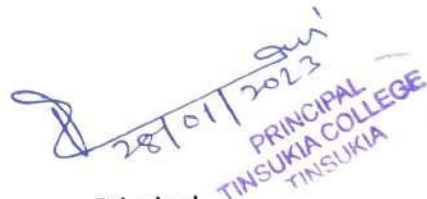 28/01/2023
PRINCIPAL
TINSUKIA COLLEGE
TINSUKIA